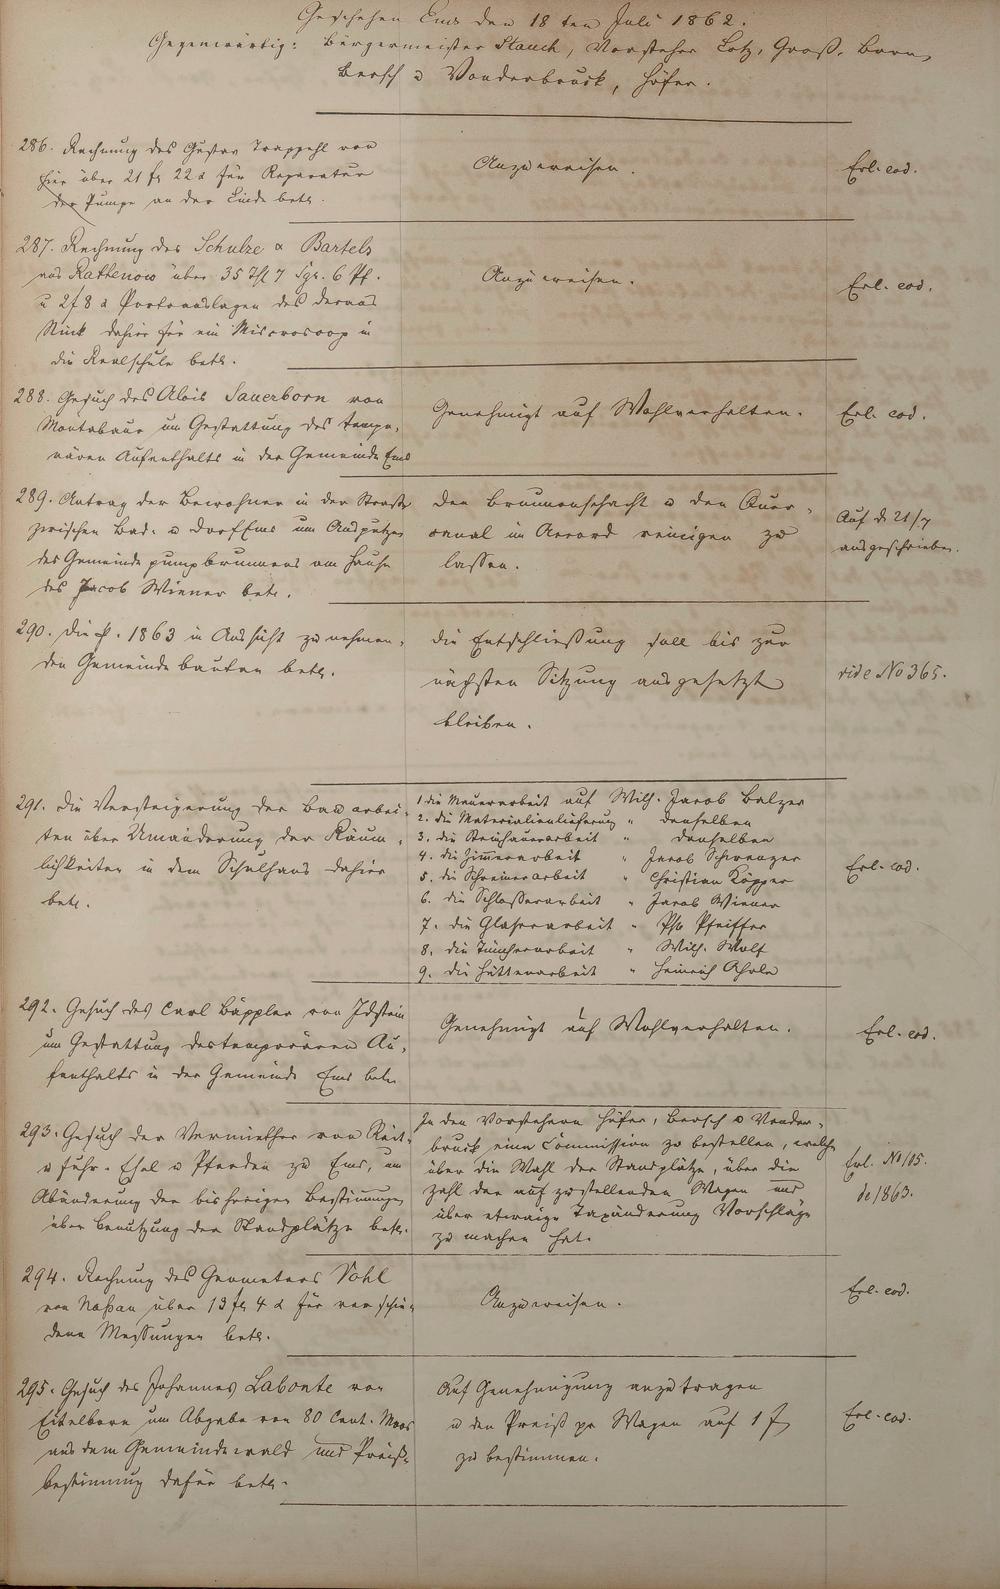 Geschehen Ems den 18ten Juli 1862.
Gegenwärtig: Bürgermeister Stauch, Vorsteher Lotz, Groß, Born,
Bersch u Vonderbruck, Höfer.
286. Rechnung des Gustav Trappehl von
hier über 21 fl 22 x für Reparatur
der Pumpe an der Linde betr.
Anzuweisen.
Erl. eod.
287. Rechnung der Schulze & Bartels
aus Rathenow über 35 Thl 7 Sgr. 6 Pf.
u 2 f 8 x Portoauslagen des
dahier für ein Microscop in
die Realschule betr.
Anzuweisen.
Erl. eod.
288. Gesuch des Alois Sauerborn von
Montabaur um Gestattung des tempo-
rären Aufenthalts in der Gemeinde Ems
Genehmigt auf Wohlverhalten.
Erl. eod.
289. Antrag der Bewohner in der Straße
zwischen Bad- u Dorf Ems um Ausputzen
des Gemeindepumpbrunnens am Hause
des Jacob Wiener betr.
Den Brunnenschacht u den Quer-
canal im Accord reinigen zu
lassen.
Auf d. 21/7
ausgeschrieben.
290. Die p. 1863 in Aussicht zu nehmen-
den Gemeindebauten betr.
Die Entschließung soll bis zur
nächsten Sitzung ausgesetzt
bleiben.
vide No 365.
291. Die Versteigerung der Bauarbei-
ten über Umänderung der Räum-
lichkeiten in dem Schulhaus dahier
betr.
1. die Mauerarbeit auf Wilh. Jacob Balzer
2. die Materialienlieferung " denselben
3. die Steinhauerarbeit " denselben
4. die Zimmerarbeit " Jacob Schwenzer
5. die Schreinerarbeit " Christian Köpper
6. die Schlosserarbeit " Jacob Wiener
7. die Glaserarbeit " Ph. Pfeiffer
8. die Tüncherarbeit " Wilh. Wolf
9. die Hüttenarbeit " Heinrich
Erl. eod.
292. Gesuch des Carl Bäppler von Idstein
um Gestattung des temporären Au-
fenthalts in der Gemeinde Ems betr
Genehmigt auf Wohlverhalten.
Erl. eod.
293. Gesuch der Vermiether von Reit-
u Fuhr-Esel u Pferden zu Ems, um
Abänderung der bisherigen Bestimmungen
über Benutzung der Standplätze betr.
In den Vorstehern Höfer, Bersch u Vonder-
bruck eine Commission zu bestellen, welche
über die Wahl der Standplätze, über die
Zahl der aufzustellenden Wagen und
über etwaige Taxänderung Vorschläge
zu machen hat.
Erl. No 105.
de 1863.
294. Rechnung des Geometers Vohl
von Nassau über 13 fl 4 x für verschie-
dene Messungen betr.
Anzuweisen.
Erl. eod.
295. Gesuch des Johannes Labonte von
Eitelborn um Abgabe von 80 Cent. Moos
aus dem Gemeindewald und Preis-
bestimmung dafür betr.
Auf Genehmigung anzutragen
u den Preiß pr Wagen auf 1 f
zu bestimmen.
Erl. eod.